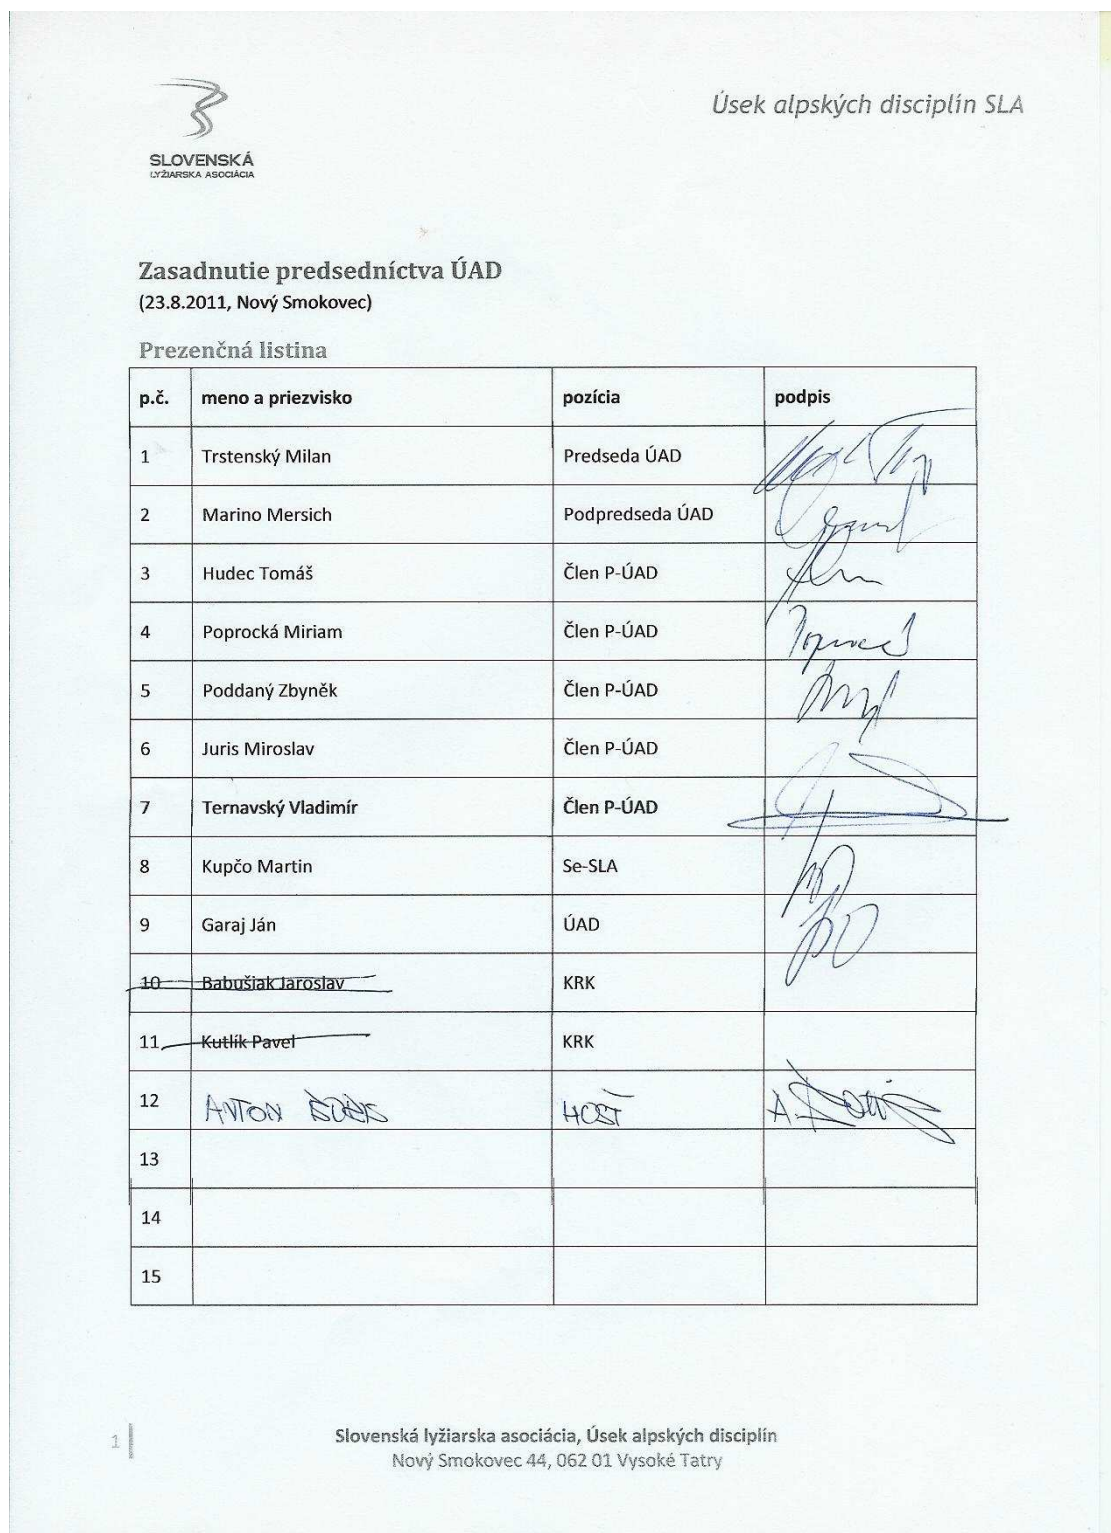 SLOVENSKÁ
LYŽIARSKA ASOCIÁCIA
Úsek alpských disciplín SLA
Zasadnutie predsedníctva ÚAD
(23.8.2011, Nový Smokovec)
Prezenčná listina
p.č. meno a priezvisko pozícia podpis
1 Trstenský Milan Predseda ÚAD
2 Marino Mersich Podpredseda ÚAD
3 Hudec Tomáš Člen P-ÚAD
4 Poprocká Miriam Člen P-ÚAD
5 Poddaný Zbyněk Člen P-ÚAD
6 Juris Miroslav Člen P-ÚAD
7 Ternavský Vladimír Člen P-ÚAD
8 Kupčo Martin Se-SLA
9 Garaj Ján ÚAD
10 Babušiak Jaroslav KRK
11 Kutlík Pavel KRK
12 ANTON HOSŤ
13
14
15
1
Slovenská lyžiarska asociácia, Úsek alpských disciplín
Nový Smokovec 44, 062 01 Vysoké Tatry